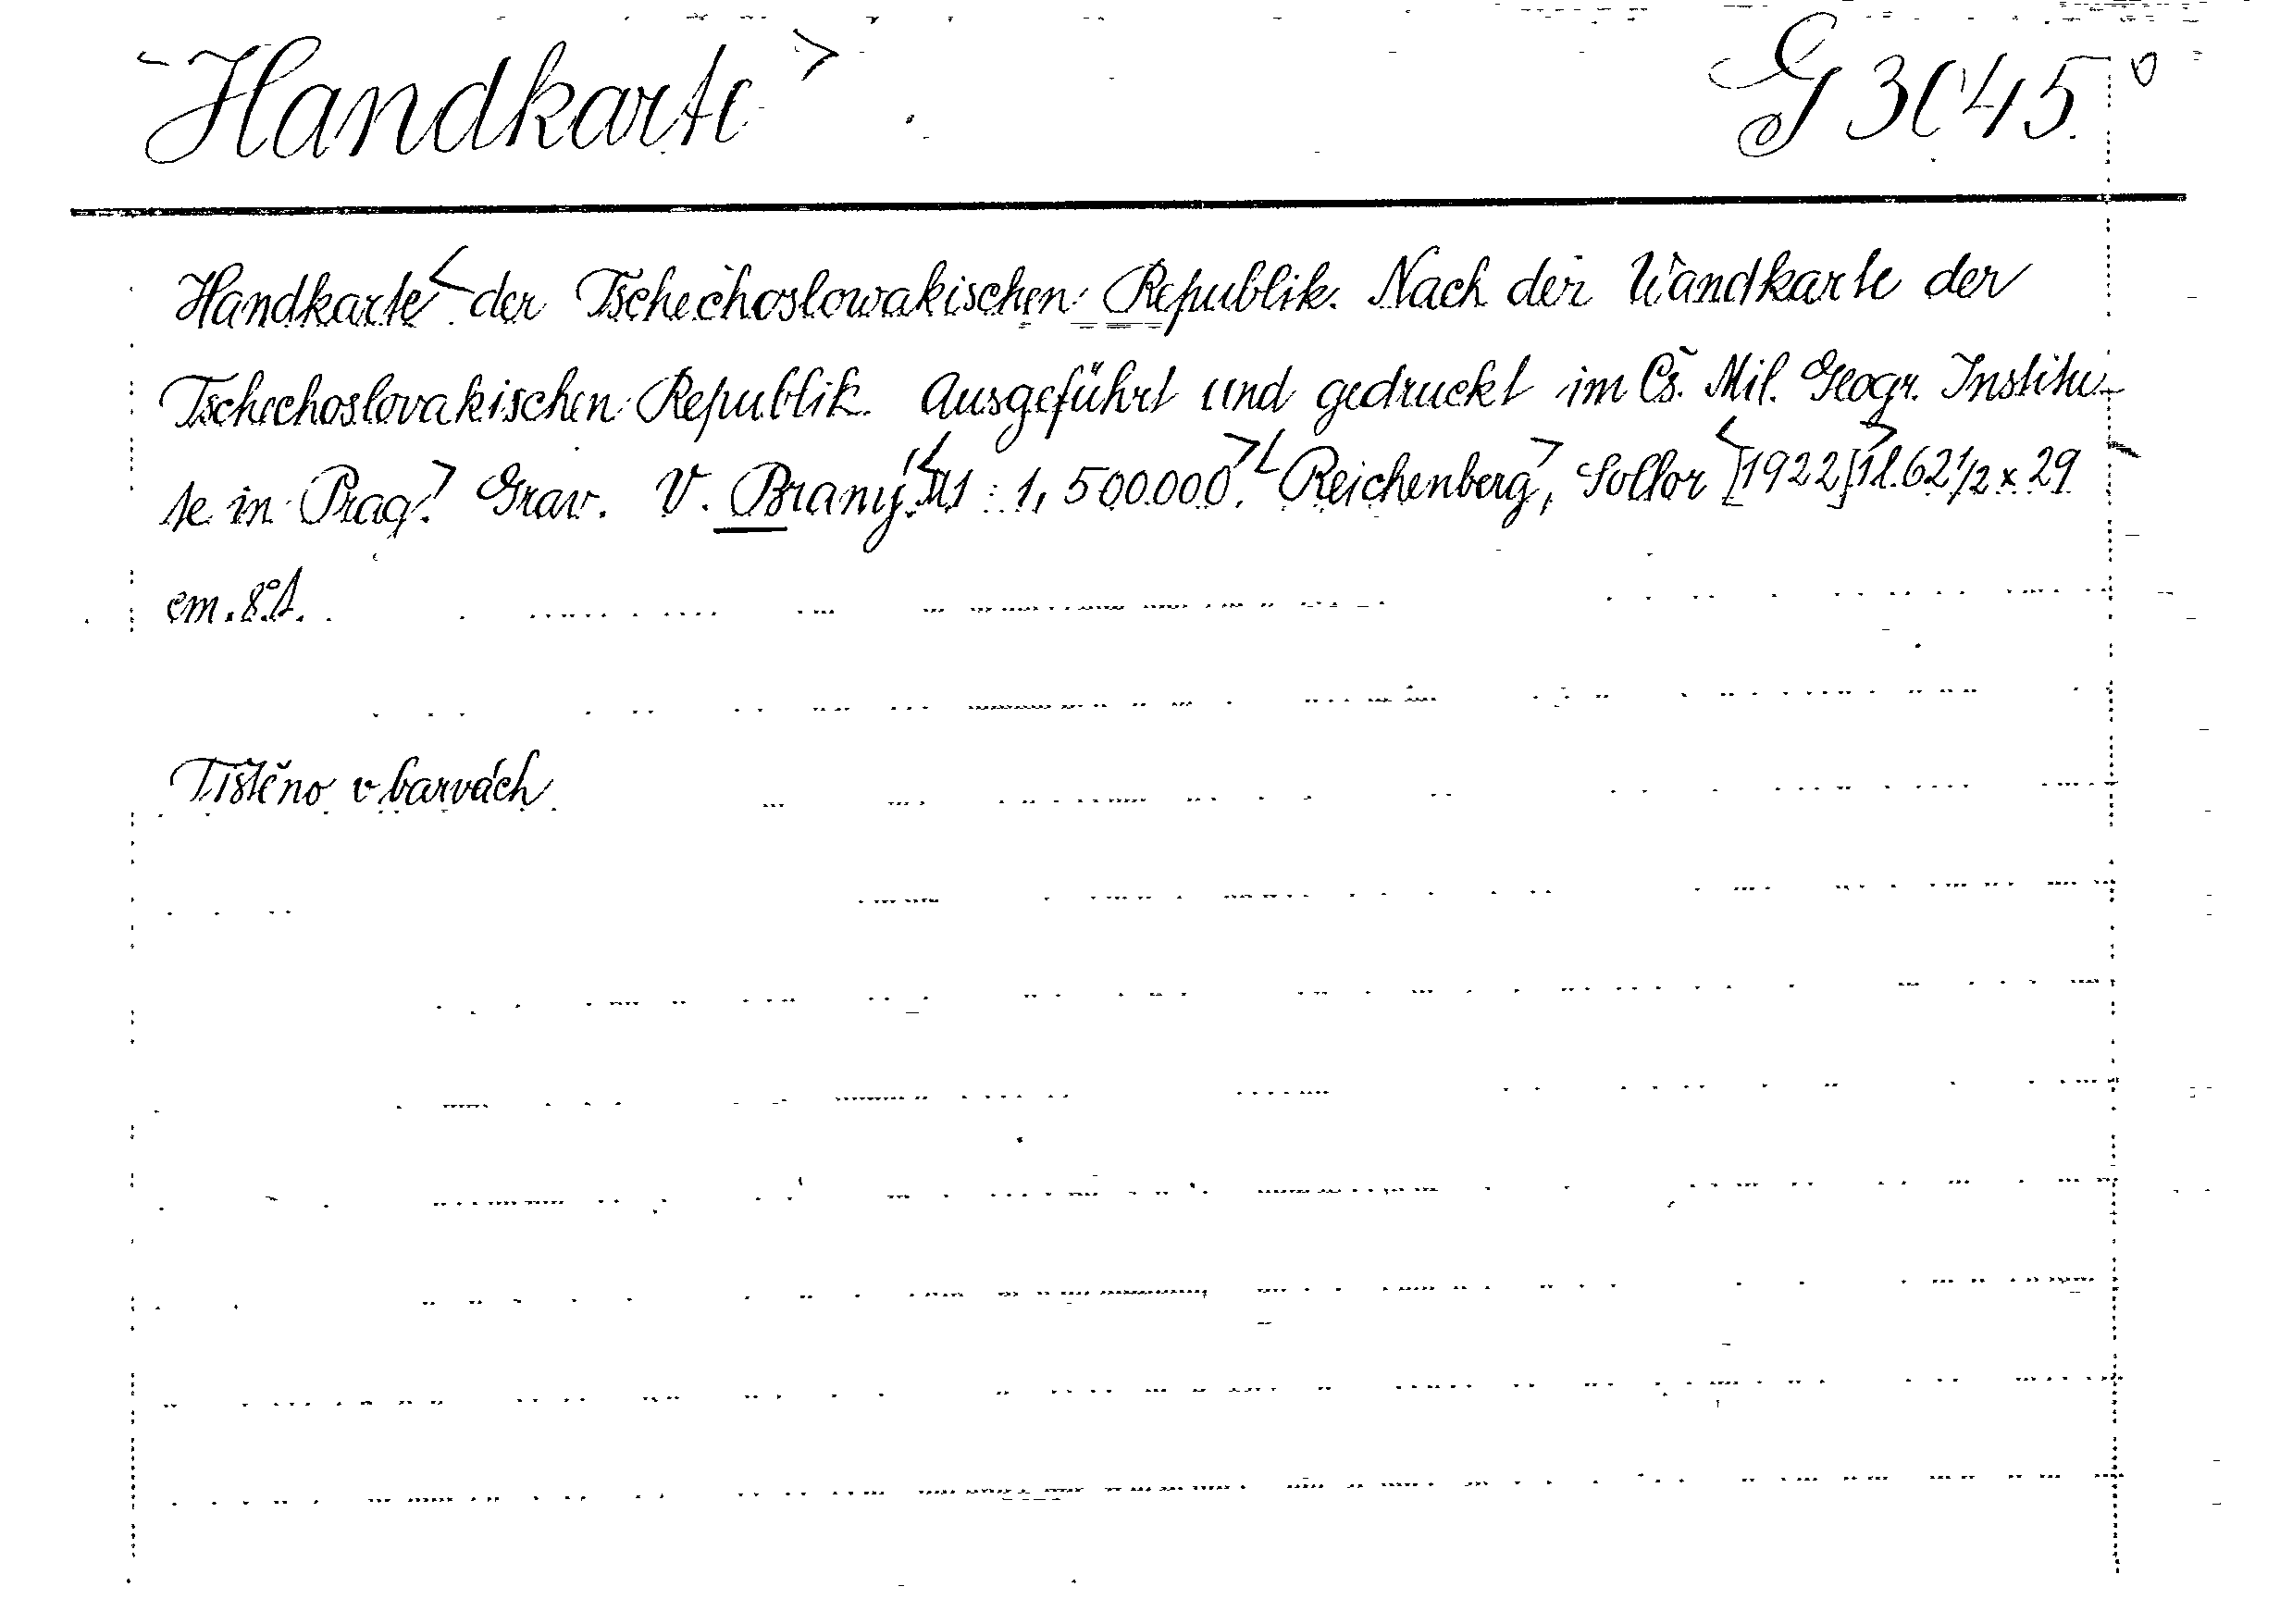 Handkarte G 3045
Handkarte der Tschechoslowakischen Republik. Nach der Wandkarte der
Tschechoslovakischen Republik. Ausgeführt und gedruckt im Čs. Mil. Geogr. Institu-
te in Prag. Grav. V. Braný. 1 : 1,500.000. Reichenberg, Sollor [1922] 1 l. 62 1/2 x 29
cm. 8°.
Tištěno v barvách